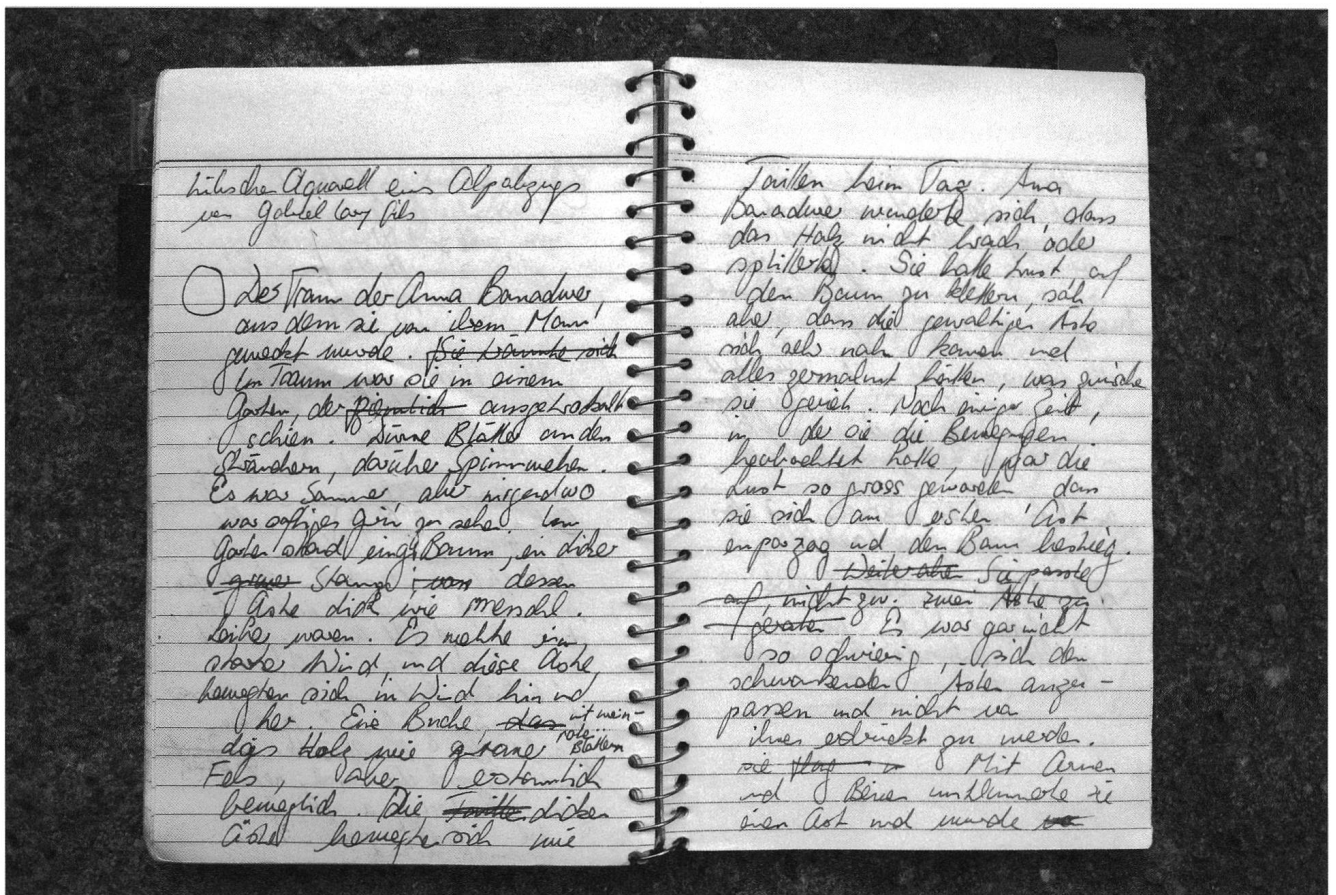 Aquarell eines Alpabzugs
von Gabriel Lory fils
Der Traum der Anna Banadurer,
aus dem sie von ihrem Mann
geweckt wurde. Sie träumte sich
Im Traum war sie in einem
Garten, der ziemlich ausgetrocknet
schien. Dürre Blätter an den
Sträuchern, darüber Spinnweben.
Es war Sommer, aber nirgendwo
war saftiges Grün zu sehen. Im
Garten stand einzig Baum, ein dicker
grauer Stamm, von dessen
Äste dick wie Menschen-
leiber waren. Es wehte ein
starker Wind, und diese Äste
bewegten sich in Wind hin und
her. Eine Buche, das mit wein-
roten Blättern
Holz wie
Fels, aber erstaunlich
beweglich. Die Taillen dicken
Äste bewegten sich wie
Taillen beim Tanz. Anna
Banadurer wunderte sich, dass
das Holz nicht brach oder
splitterte. Sie hatte Lust, auf
den Baum zu klettern, sah
aber, dass die gewaltigen Äste
sich sehr nah kamen und
alles zermalmt hätten, was zwischen
sie geriet. Nach einiger Zeit,
in der sie die Bewegungen
beobachtet hatte, war die
Lust so gross geworden dass
sie sich am ersten Ast
emporzog und den Baum bestieg.
Weiter oben Sie passte
auf, nicht zw. zwei Äste zu
geraten. Es war gar nicht
so schwierig, sich den
schwankenden Ästen anzu-
passen und nicht von
ihnen erdrückt zu werden.
sie Mit Armen
und Beinen umklammerte sie
einen Ast und wurde